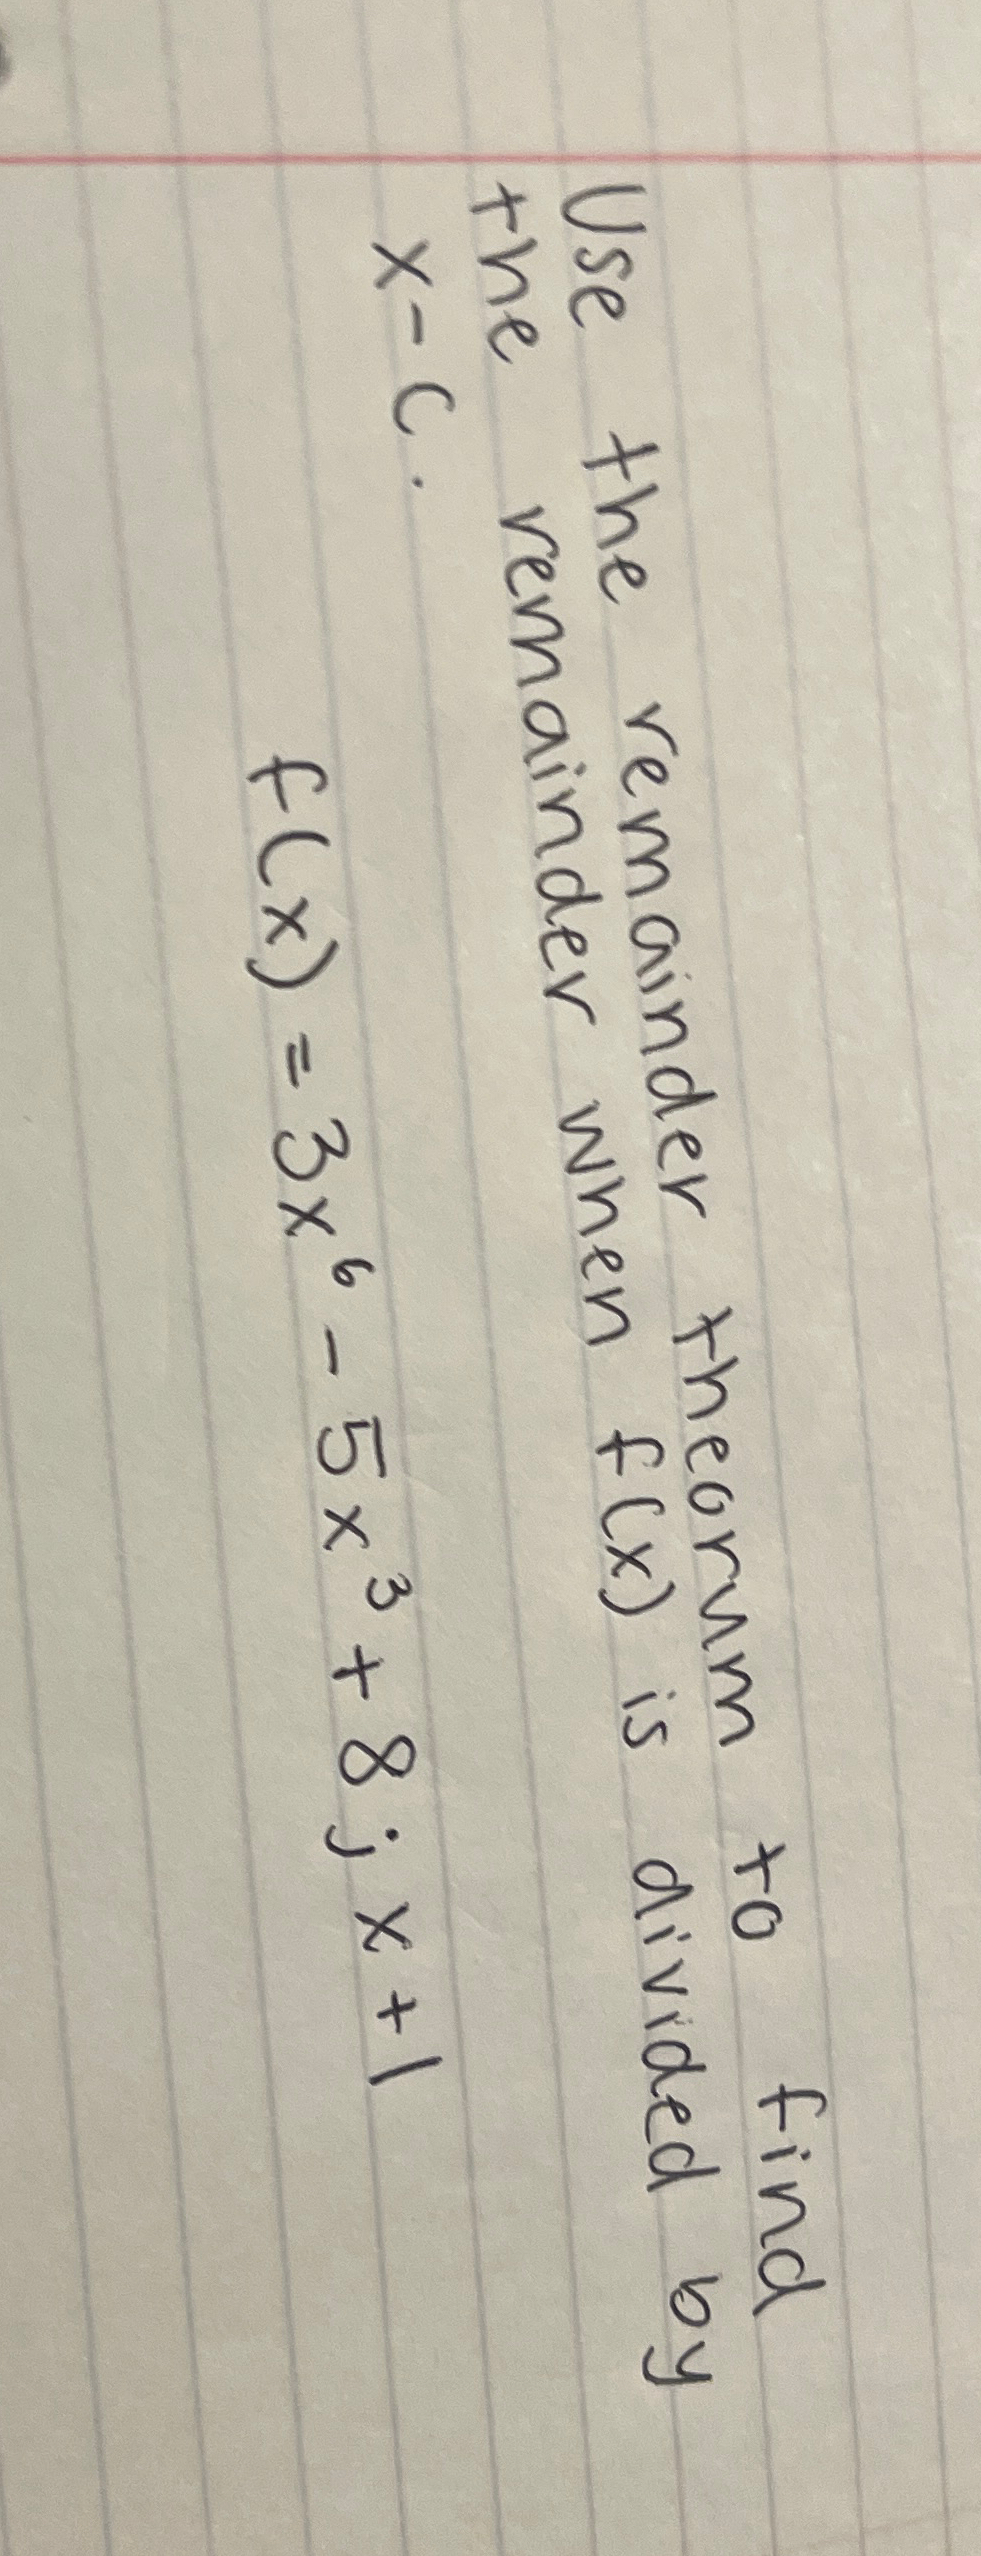 Use the remainder theorum to find
the remainder when f(x) is divided by
x - c.
f(x) = 3x⁶ - 5x³ + 8; x + 1